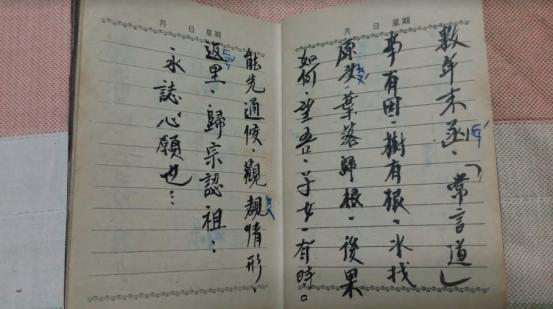 月 日 星期
數年未函、「常言道」
事有因、樹有根、水找
源头、葉落歸根、後果
如何、望吾、子女、有時。
月 日 星期
能先通候、觀情形、
返里、歸宗認祖：
永誌心願也…